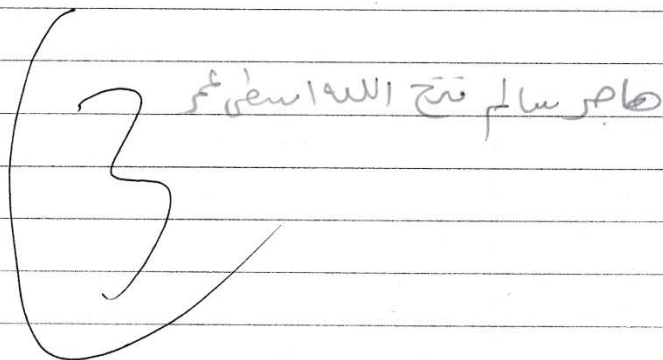 هاجر سالم فتح الله اسطى عمر
3